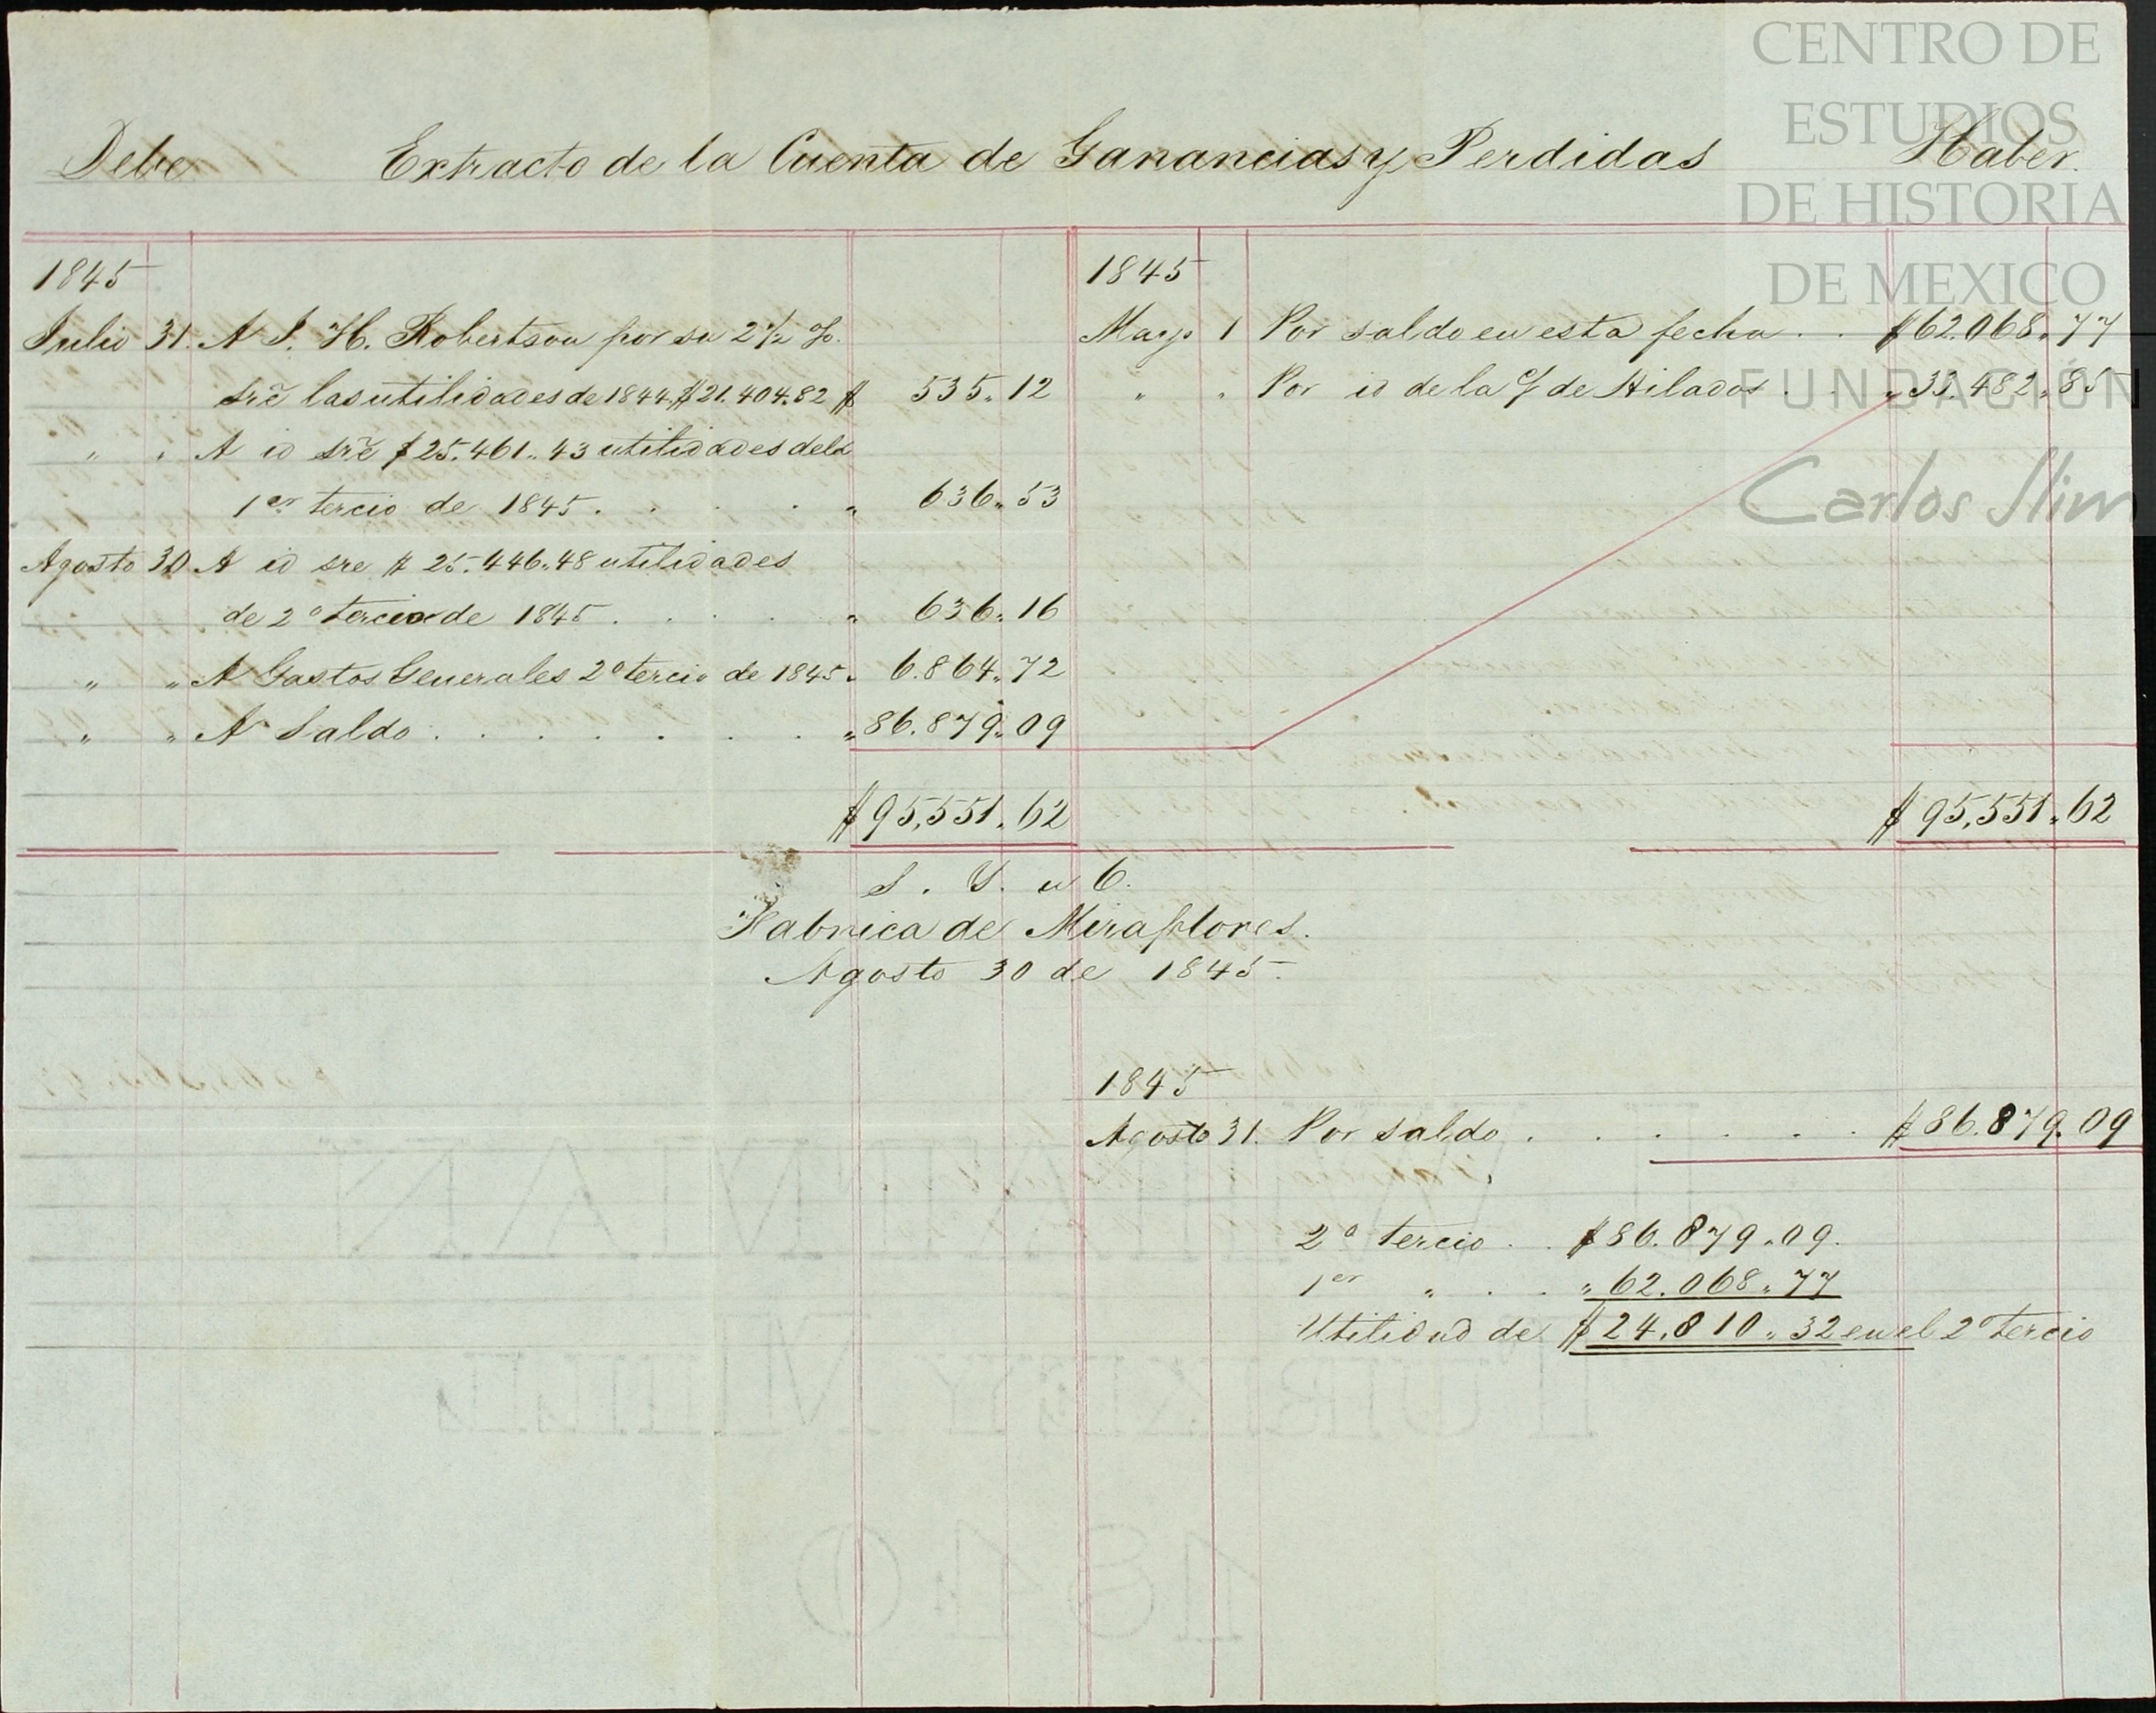 CENTRO DE
ESTUDIOS
DE HISTORIA
DE MEXICO
FUNDACIÓN
Carlos Slim
Debe Extracto de la Cuenta de Ganancias y Perdidas Haber.
1845
Julio 31. A J. H. Robertson por su 2 1/2 %.
sre las utilidades de 1844, $21.404.82 $ 535.. 12
" " A id sre $ 25.461.. 43 utilidades del
1er tercio de 1845 . . . . " 636.. 53
Agosto 30 A id sre $ 25.446..48 utilidades
de 2º tercio de 1845 . . . . " 636.. 16
" " A Gastos Generales 2º tercio de 1845 " 6.864.. 72
" " A Saldo . . . . . . . " 86.879.. 09
$ 95,551.. 62
1845
Mayo 1 Por saldo en esta fecha . . $62.068.. 77
" " Por id de la c/ de Hilados . . " 33.482.. 85
$ 95,551.. 62
S. Y. u O.
Fabrica de Miraflores.
Agosto 30 de 1845.
1845
Agosto 31. Por saldo . . . . . . $ 86.879.. 09
2º tercio . . $86.879..09.
1er " . . " 62.068.. 77
Utilidad de $ 24.810.. 32 en el 2º tercio
J WHATMAN
TURKEY MILL
1840